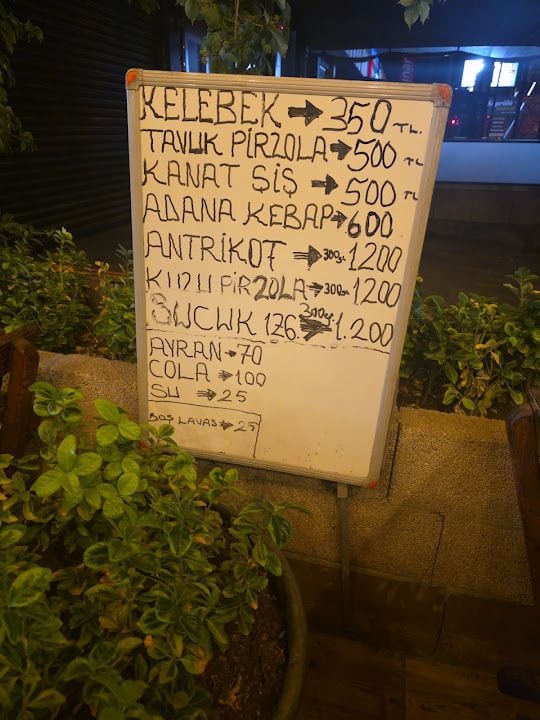 KELEBEK → 350 TL.
TAVUK PİRZOLA → 500 TL
KANAT ŞİŞ → 500 TL
ADANA KEBAP → 600
ANTRİKOT → 300gr. 1200
KUZU PİRZOLA → 300gr. 1200
SUCUK IZG. 300gr. 1.200
AYRAN → 70
COLA → 100
SU → 25
BOŞ LAVAŞ → 25